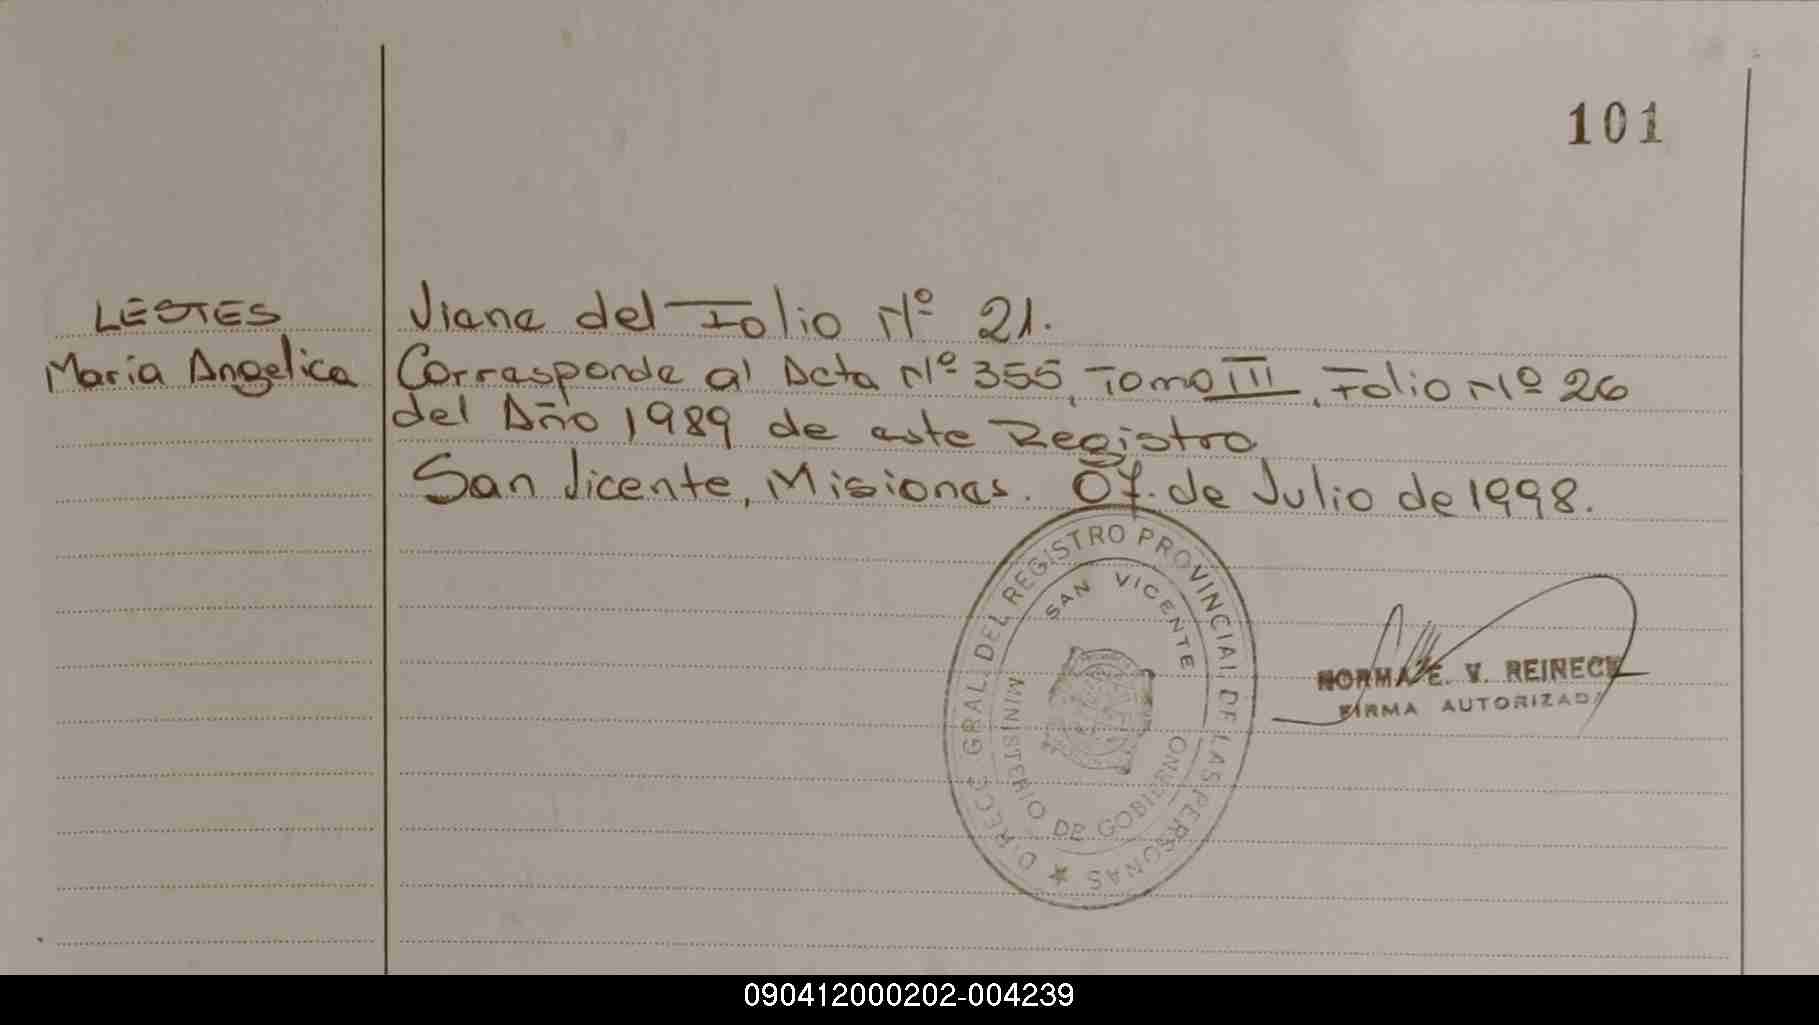 101
LESTES
María Angelica
Viene del Folio Nº 21.
Corresponde al Acta Nº 355, Tomo III, Folio Nº 26
del Año 1989 de este Registro.
San Vicente, Misiones. 07. de Julio de 1998.
DIRECC. GRAL. DEL REGISTRO PROVINCIAL DE LAS PERSONAS
SAN VICENTE
MINISTERIO DE GOBIERNO
NORMA E. V. REINECK
FIRMA AUTORIZADA
090412000202-004239